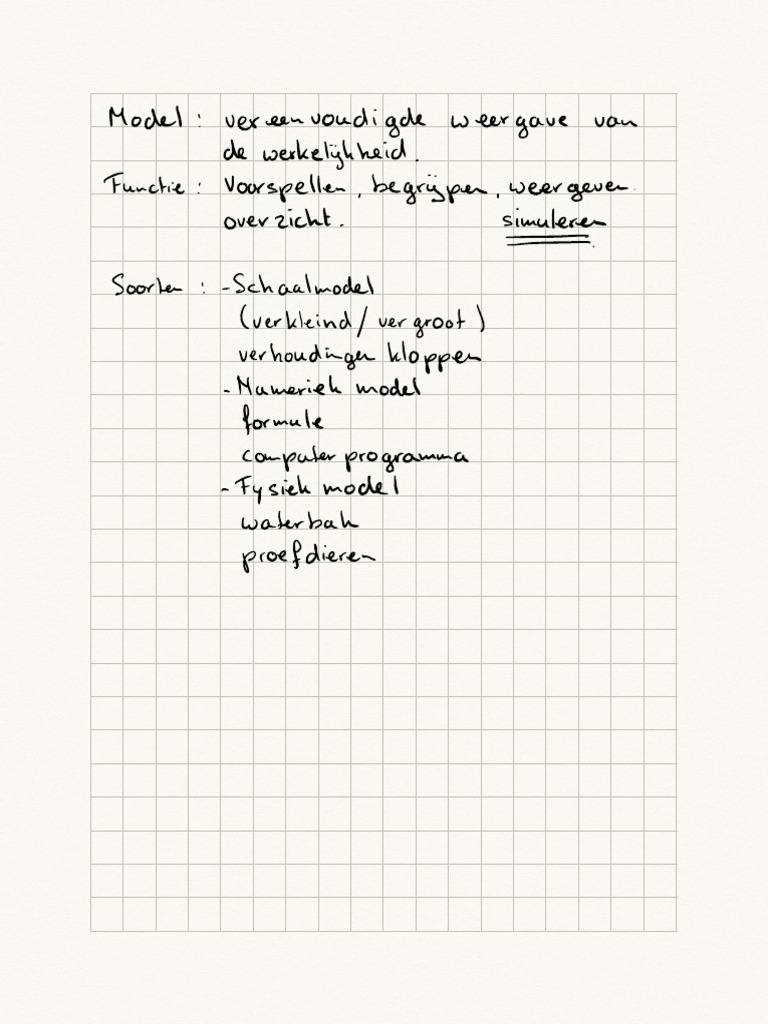 Model : vereenvoudigde weergave van
de werkelijkheid.
Functie : Voorspellen, begrijpen, weergeven.
overzicht. simuleren
Soorten : - Schaalmodel
(verkleind / vergroot)
verhoudingen kloppen
- Numeriek model
formule
computer programma
- Fysiek model
waterbak
proefdieren